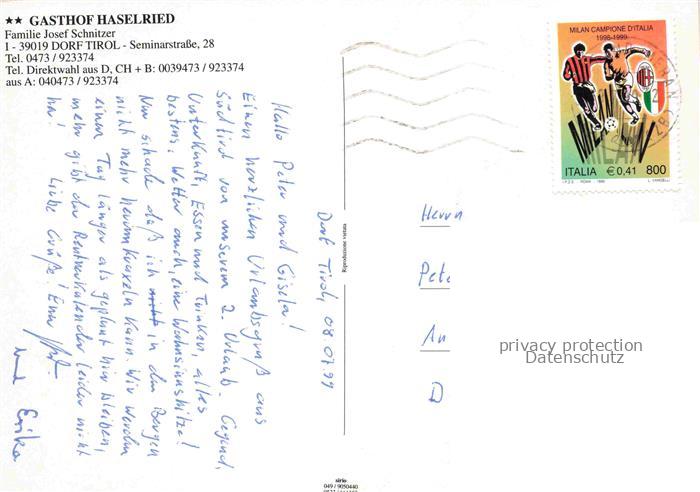 ★★ GASTHOF HASELRIED
Familie Josef Schnitzer
I - 39019 DORF TIROL - Seminarstraße, 28
Tel. 0473 / 923374
Tel. Direktwahl aus D, CH + B: 0039473 / 923374
aus A: 040473 / 923374
Dorf Tirol, 08.07.99
Hallo Peter und Gisela!
Einen herzlichen Urlaubsgruß aus
Südtirol von unserem 2. Urlaub. Gegend,
Unterkunft, Essen und Trinken, alles
bestens. Wetter auch, eine Wahnsinnshitze!
Nur schade daß ich nicht in den Bergen
nicht mehr herumkraxeln kann. Wir werden
einen Tag länger als geplant hier bleiben,
mehr gibt der Rentnerkalender leider nicht
her! Liebe Grüße! Euer
und Erika
Reproduzione vietata
sirio
049 / 9050440
MILAN CAMPIONE D'ITALIA
1998-1999
MILAN
ITALIA €0,41 800
I.P.Z.S. ROMA 1999
Herrn
Pete
An
D
privacy protection
Datenschutz